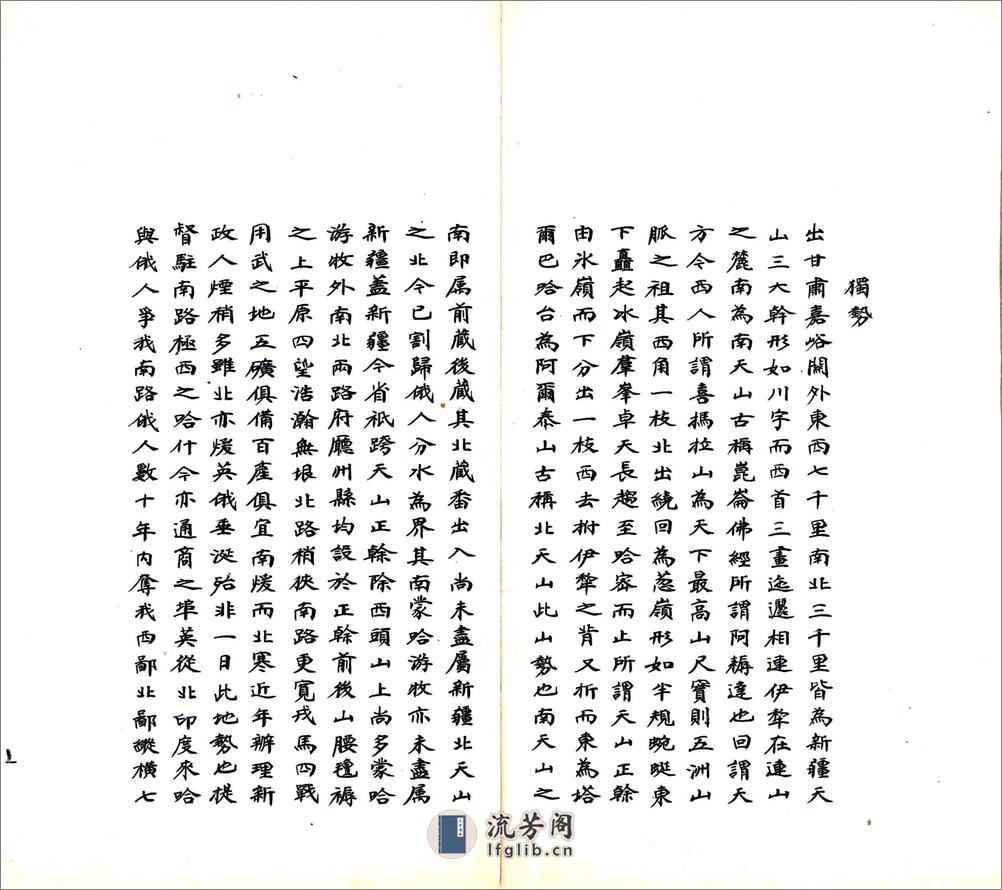 獨勢
出甘肅嘉峪關外東西七千里南北三千里皆為新疆天
山三大幹形如川字而西首三畫迤邐相連伊犂在連山
之麓南為南天山古稱崑崙佛經所謂阿耨達也回謂天
方今西人所謂喜馬拉山為天下最高山尺實則五洲山
脈之祖其西角一枝北出繞回為葱嶺形如半規蜿蜒東
下矗起冰嶺羣峯卓天長趨至哈密而止所謂天山正榦
由氷嶺而下分出一枝西去柎伊犂之背又折而東為塔
爾巴哈台為阿爾泰山古稱北天山此山勢也南天山之
南即属前蔵後蔵其北蔵畨出入尚未盡屬新疆北天山
之北今已割歸俄人分水為界其南蒙哈游牧亦未盡属
新疆蓋新疆今省祇跨天山正榦除西頭山上尚多蒙哈
游牧外南北兩路府廳州縣均設於正榦前後山腰氊褥
之上平原四望浩瀚無垠北路稍狹南路更寛戎馬四戰
用武之地五礦俱備百產俱宜南煖而北寒近年辦理新
政人煙稍多雖北亦煖英俄垂涎殆非一日此地勢也提
督駐南路極西之哈什今亦通商之埠英從北印度來哈
與俄人爭我南路俄人數十年內奪我西鄙北鄙縱橫七
流芳阁
lfglib.cn